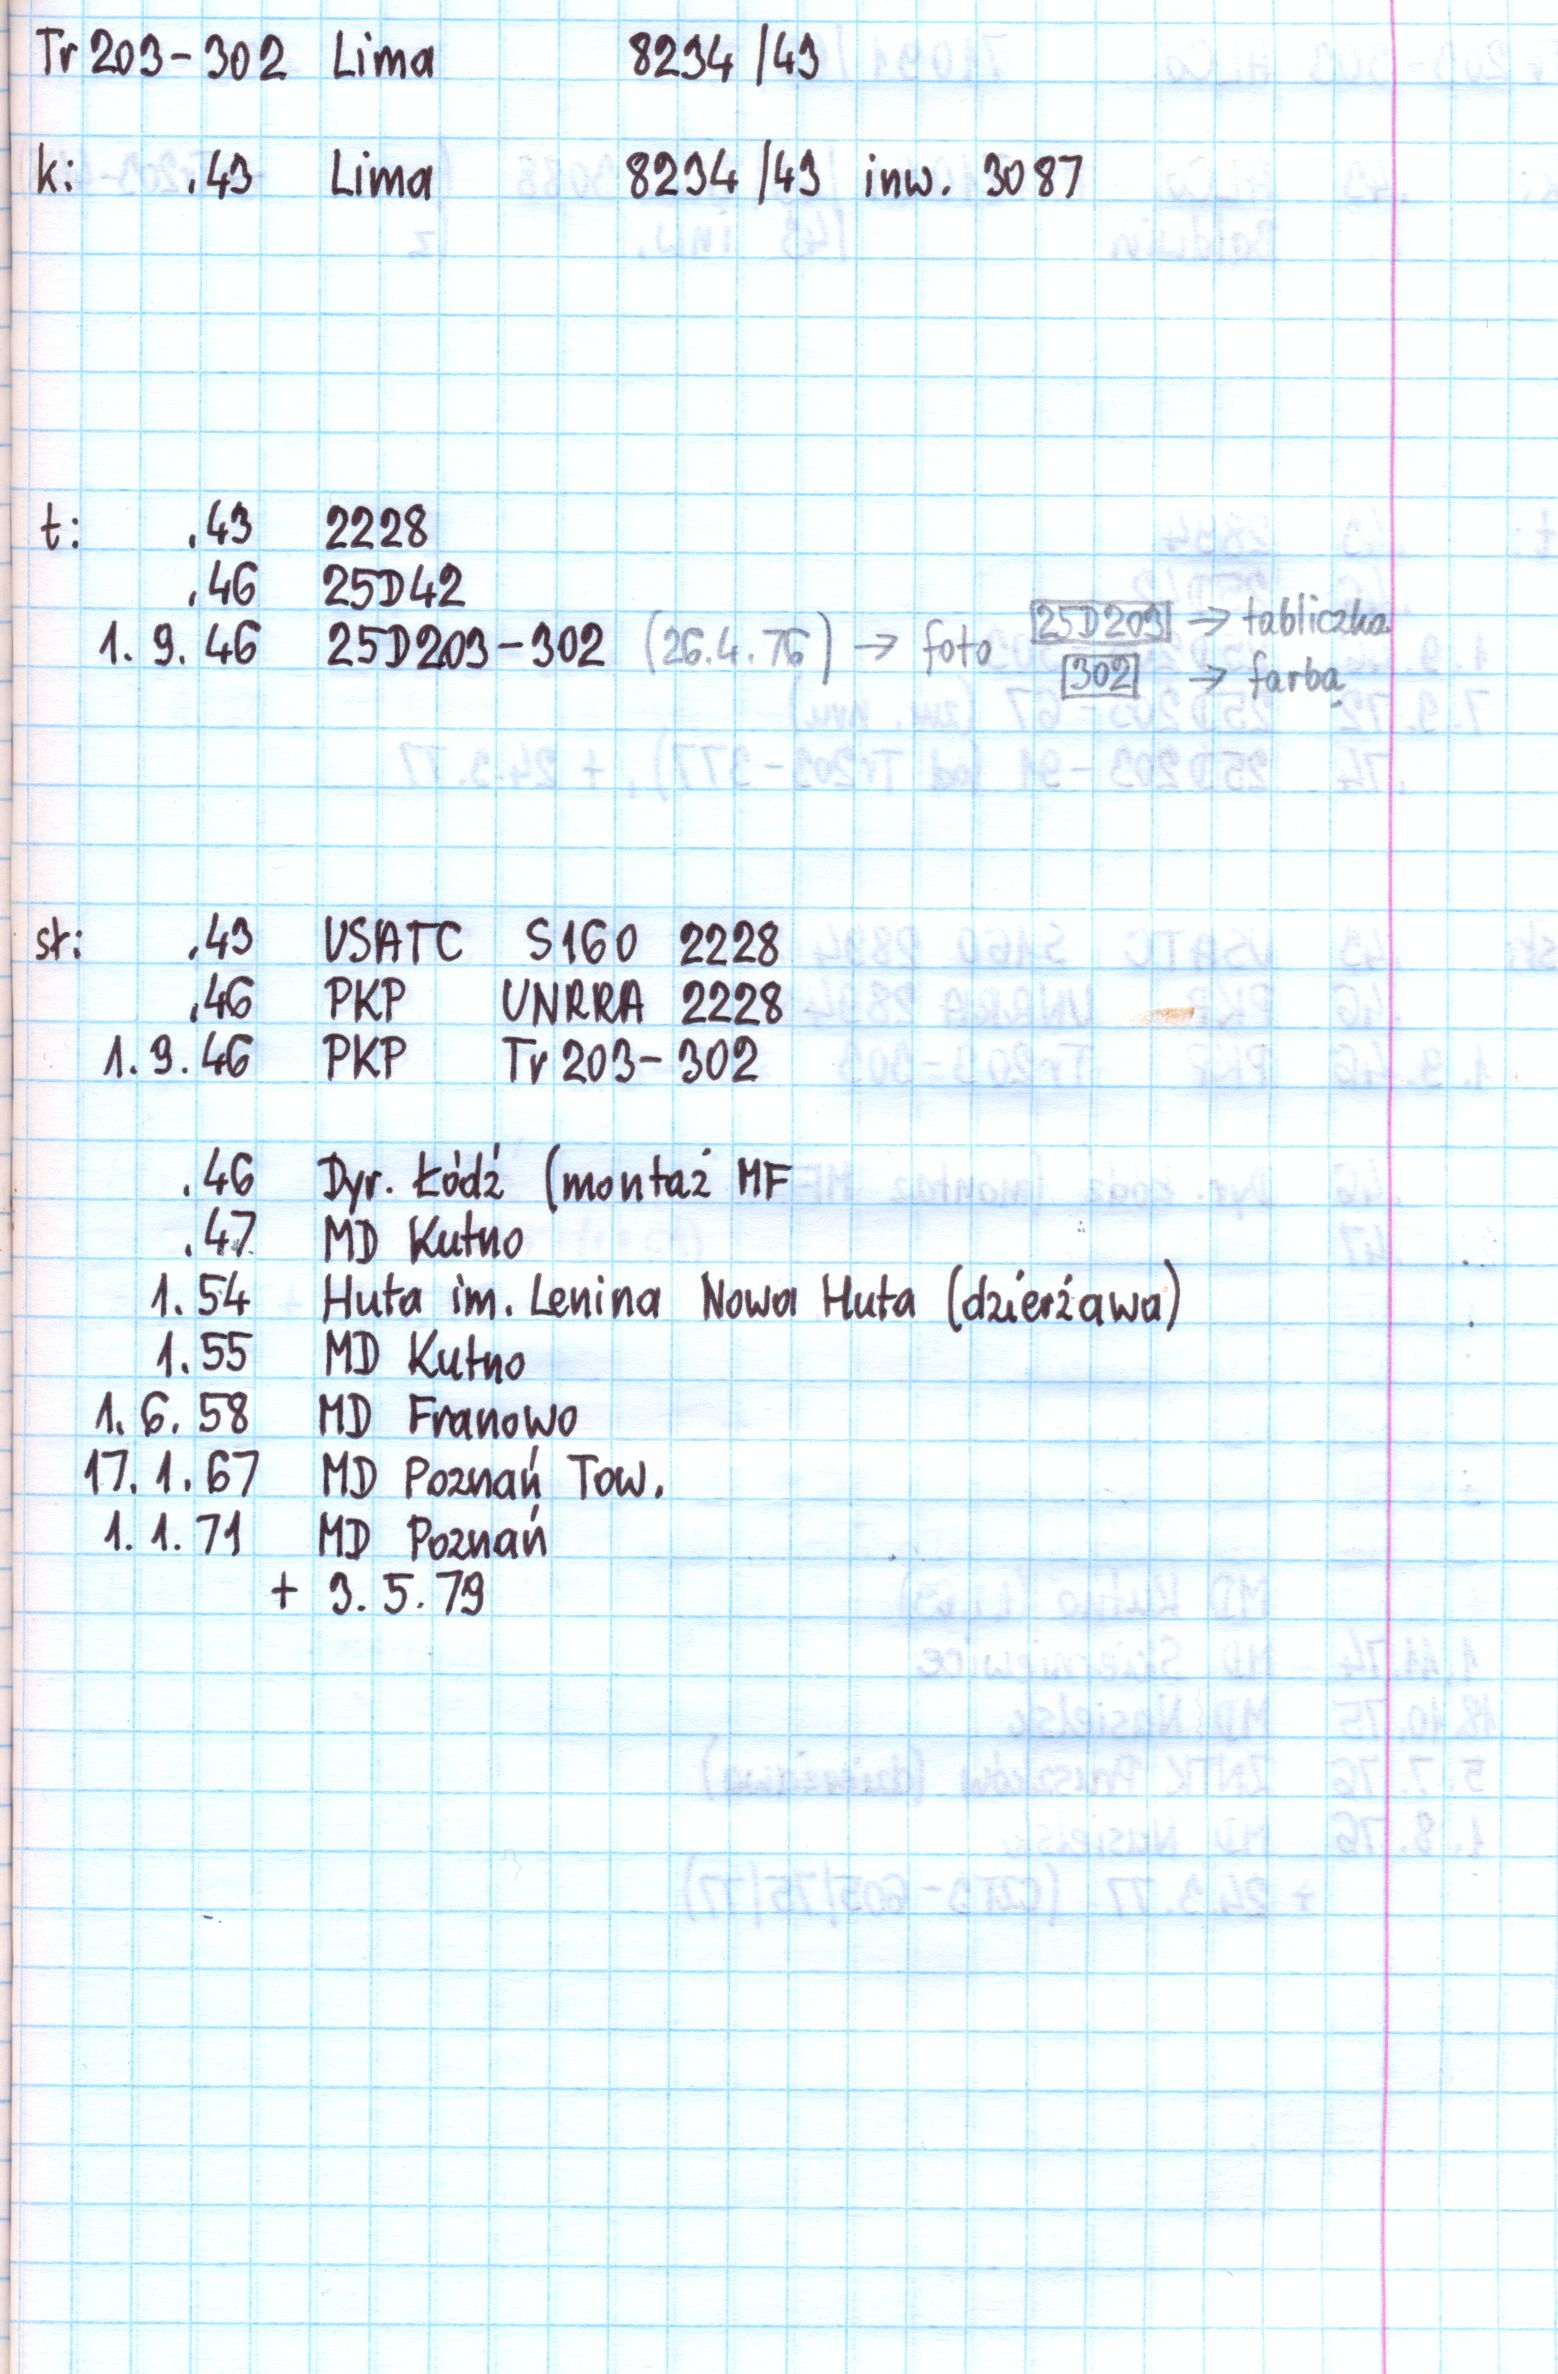 Tr 203-302 Lima 8234/43
k: .43 Lima 8234/43 inw. 3087
t: .43 2228
.46 25D42
1.9.46 25D203-302 (26.4.76) → foto 25D203 → tabliczka
302 → farba
st: .43 USATC S160 2228
.46 PKP UNRRA 2228
1.9.46 PKP Tr 203-302
.46 Dyr. Łódź (montaż MF
.47 MD Kutno
1.54 Huta im. Lenina Nowa Huta (dzierżawa)
1.55 MD Kutno
1.6.58 MD Franowo
17.1.67 MD Poznań Tow.
1.1.71 MD Poznań
+ 3.5.79